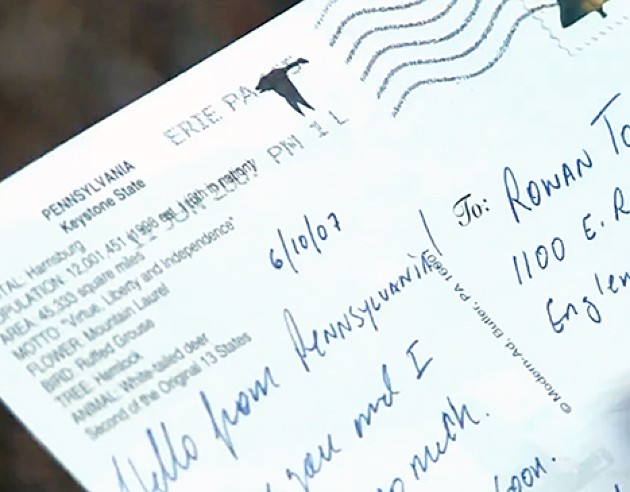 ERIE PA
JUN 2007 PM 1 L
PENNSYLVANIA
Keystone State
Harrisburg
12,001,451
AREA: 45,333 square miles
MOTTO: "Virtue, Liberty and Independence"
FLOWER: Mountain Laurel
BIRD: Ruffed Grouse
TREE: Hemlock
ANIMAL: White-tailed deer
Second of the Original 13 States
6/10/07
Hello from PENNSYLVANIA!
you and I
soon.
© Modern-Ad, Butler, PA
To: ROWAN
1100 E. R
Englew